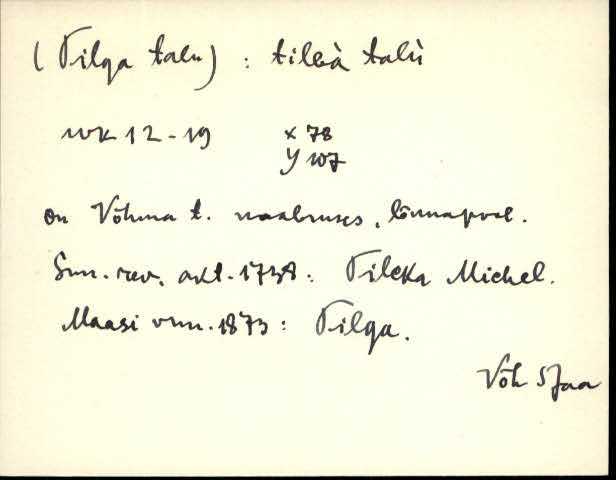 (Tilga talu) : tilɢà talù
WK 12-19 x 78
y 107
on Võhma t. naabruses, lõunapool.
Sun. rev. akt. 1738: Tilcka Michel.
Maasi vrn. 1873: Tilga.
Võh SJaa